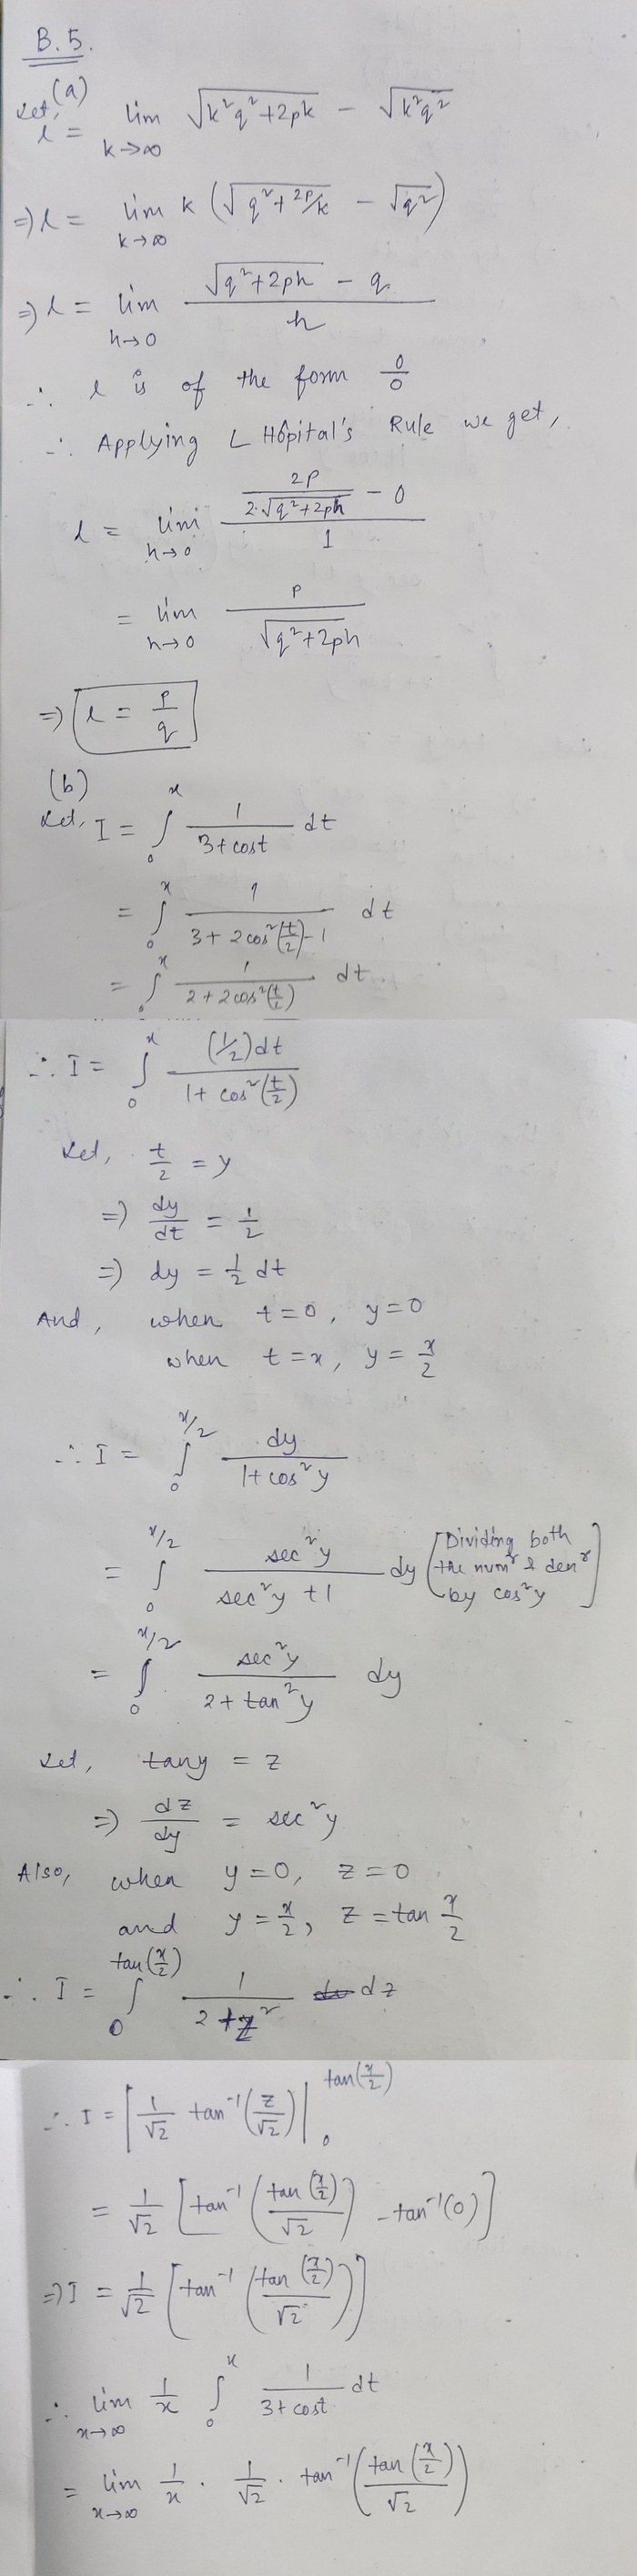 B.5.
(a)
Let, l = lim k→∞ √(k²q²+2pk) − √(k²q²)
⇒ l = lim k→∞ k (√(q²+2p/k) − √(q²))
⇒ l = lim h→0 (√(q²+2ph) − q)/h
∴ l is of the form 0/0
∴ Applying L Hôpital's Rule we get,
l = lim h→0 (2p/(2·√(q²+2ph)) − 0)/1
= lim h→0 p/√(q²+2ph)
⇒ l = p/q
(b)
Let, I = ∫₀ˣ 1/(3+cost) dt
= ∫₀ˣ 1/(3+2cos²(t/2)−1) dt
= ∫₀ˣ 1/(2+2cos²(t/2)) dt.
∴ I = ∫₀ˣ (1/2)dt/(1+cos²(t/2))
Let, t/2 = y
⇒ dy/dt = 1/2
⇒ dy = 1/2 dt
And, when t=0, y=0
when t=x, y = x/2
∴ I = ∫₀^(x/2) dy/(1+cos²y)
= ∫₀^(x/2) sec²y/(sec²y+1) dy [Dividing both the numʳ & denʳ by cos²y]
= ∫₀^(x/2) sec²y/(2+tan²y) dy
Let, tany = z
⇒ dz/dy = sec²y
Also, when y=0, z=0
and y = x/2, z = tan x/2
∴ I = ∫₀^(tan(x/2)) 1/(2+z²) dz
∴ I = [1/√2 tan⁻¹(z/√2)]₀^(tan(x/2))
= 1/√2 [tan⁻¹(tan(x/2)/√2) − tan⁻¹(0)]
⇒ I = 1/√2 [tan⁻¹(tan(x/2)/√2)]
∴ lim x→∞ 1/x ∫₀ˣ 1/(3+cost) dt
= lim x→∞ 1/x · 1/√2 · tan⁻¹(tan(x/2)/√2)